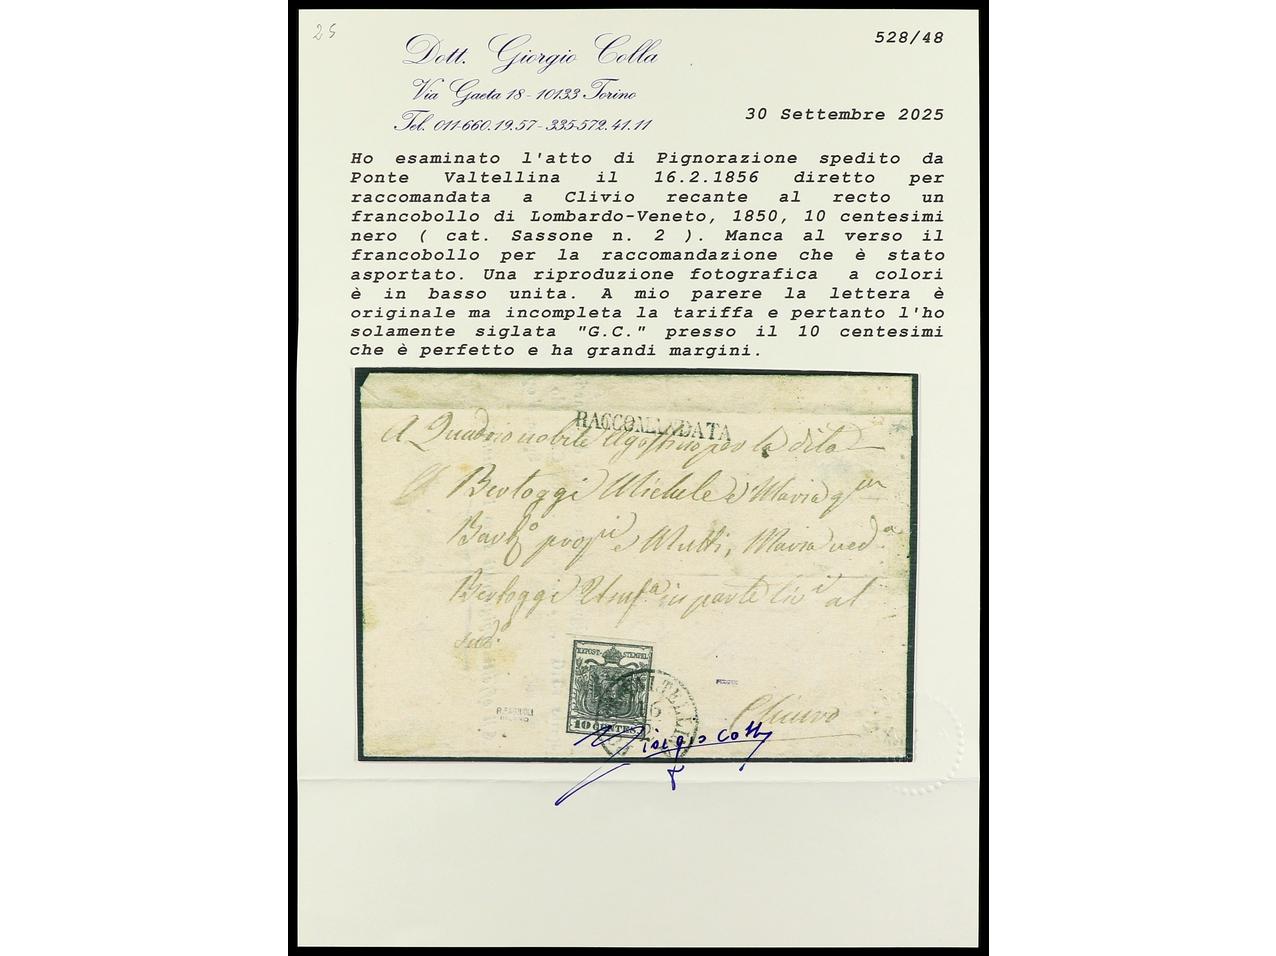 25
528/48
Dott. Giorgio Colla
Via Gaeta 18 - 10133 Torino
Tel. 011-660.19.57 - 335-572.41.11
30 Settembre 2025
Ho esaminato l'atto di Pignorazione spedito da
Ponte Valtellina il 16.2.1856 diretto per
raccomandata a Clivio recante al recto un
francobollo di Lombardo-Veneto, 1850, 10 centesimi
nero ( cat. Sassone n. 2 ). Manca al verso il
francobollo per la raccomandazione che è stato
asportato. Una riproduzione fotografica a colori
è in basso unita. A mio parere la lettera è
originale ma incompleta la tariffa e pertanto l'ho
solamente siglata "G.C." presso il 10 centesimi
che è perfetto e ha grandi margini.
RACCOMANDATA
A Quadrio nobile Agostino per la dita
Bertoggi Michele e Maria qm
Maria ved.a
Bertoggi in parte liv.i al
sud.o
KKPOST-STEMPEL
10 CENTES.
16
Chiuro
Giorgio Colla